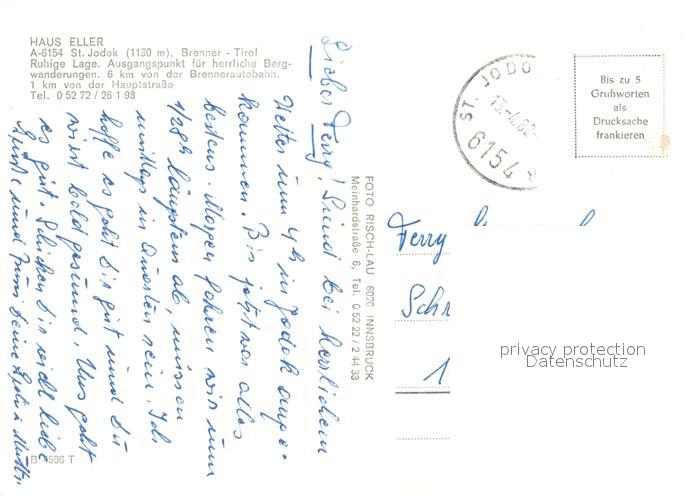 HAUS ELLER
A-6154 St. Jodok (1130 m), Brenner - Tirol
Ruhige Lage. Ausgangspunkt für herrliche Berg-
wanderungen. 6 km von der Brennerautobahn.
1 km von der Hauptstraße
Tel. 0 52 72 / 26 1 98
Lieber Ferry! Sind bei herrlichem
Wetter um 4h in Jodok ange-
kommen. Bis jetzt war alles
bestens. Morgen fahren wir um
längstens ab, müssen
mittags in sein. Ich
hoffe es geht Dir gut und Du
wirst bald gesund. Uns geht
es gut. Schicken Dir viele liebe
Grüße und Deine
B 4596 T
FOTO RISCH-LAU 6020 INNSBRUCK
Meinhardstraße 6, Tel. 0 52 22 / 2 44 33
ST. JODO
6154
Bis zu 5
Grußworten
als
Drucksache
frankieren
Ferry
Schr
1
privacy protection
Datenschutz